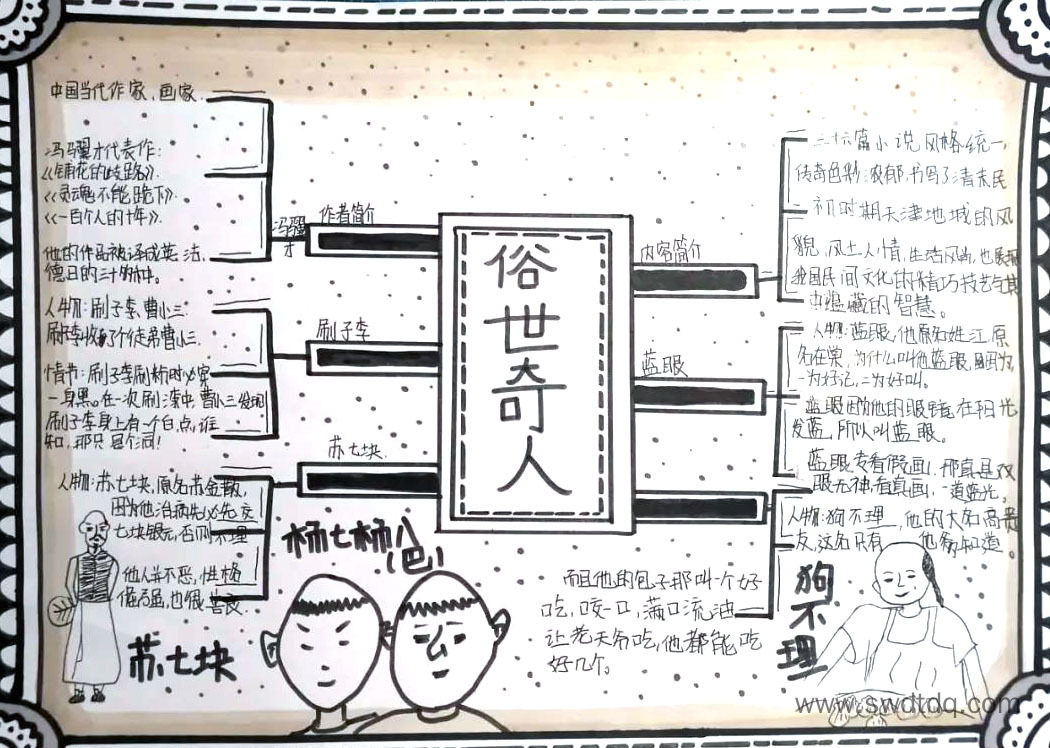 俗世奇人
中国当代作家、画家
冯骥才代表作:
《铺花的歧路》.
《灵魂不能跪下》.
《一百个人的十年》.
他的作品被译成英、法、
德日的三十物种.
冯骥才
作者简介
人物:刷子李、曹小三.
刷子李收了个徒弟曹小三.
情节:刷子李刷桥时必穿
一身黑。在一次刷漆中,曹小三发现
刷子李身上有一个白点,谁
知,那只是个洞!
刷子李
人物:苏七块,原名苏金散,
因为他治病先必先交
七块银元,否则不理
他人并不恶,性格
倔强,也很善良.
苏七块
苏七块
杨七杨八
(巴)
内容简介
三十六篇小说风格统一,
传奇色彩浓郁,书写了清末民
初时期天津地域的风
貌,风土人情,生活风尚,也展现
我国民间文化的精巧技艺与其
中蕴藏的智慧。
蓝眼
人物:蓝眼,他原名姓江,原
名在棠,为什么叫他蓝眼,因为,
一为好记,二为好叫。
蓝眼因为他的眼睛在阳光
发蓝,所以叫蓝眼.
蓝眼专看假画,那真是双
眼无神,看真画,一道蓝光。
人物:狗不理,他的大如高贵
友,这名只有 他爹知道。
而且他的包子那叫一个好
吃,咬一口,满口流油
让老天爷吃,他都能吃
好几个。
狗不理
www.swdtdq.com